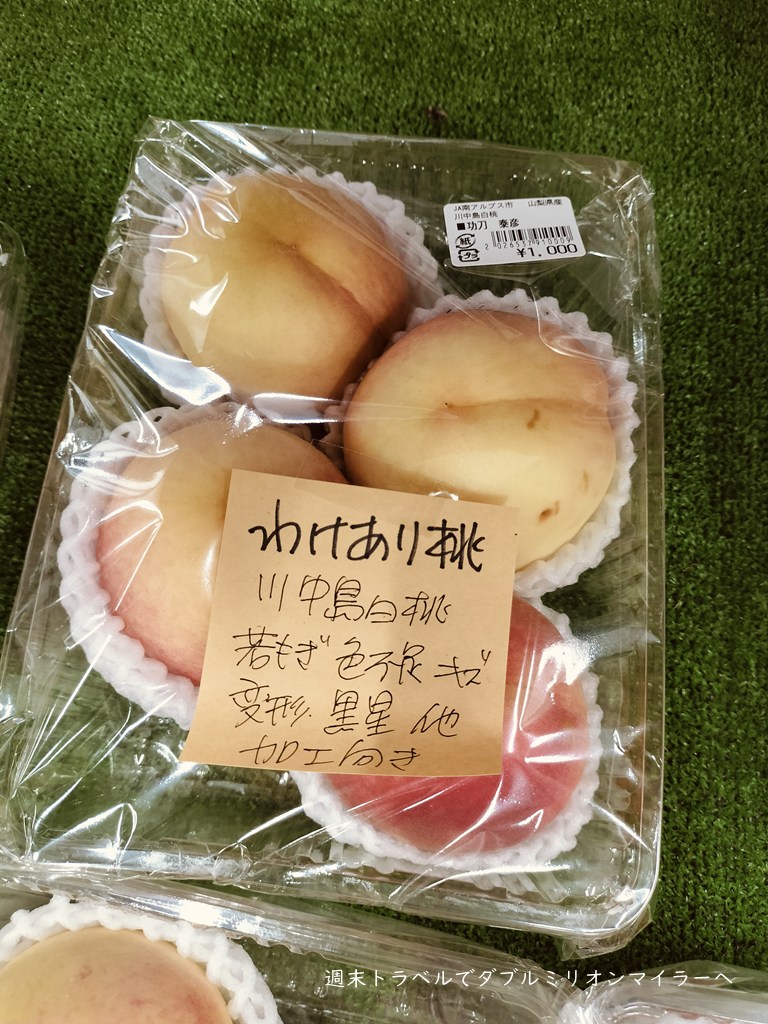 JA南アルプス市 山梨県産
川中島白桃
■功刀 泰彦
紙
2 026537 910009
¥1,000
わけあり桃
川中島白桃
若もぎ 色不良 キズ
変形. 黒星 他
加工向き
週末トラベルでダブルミリオンマイラーへ